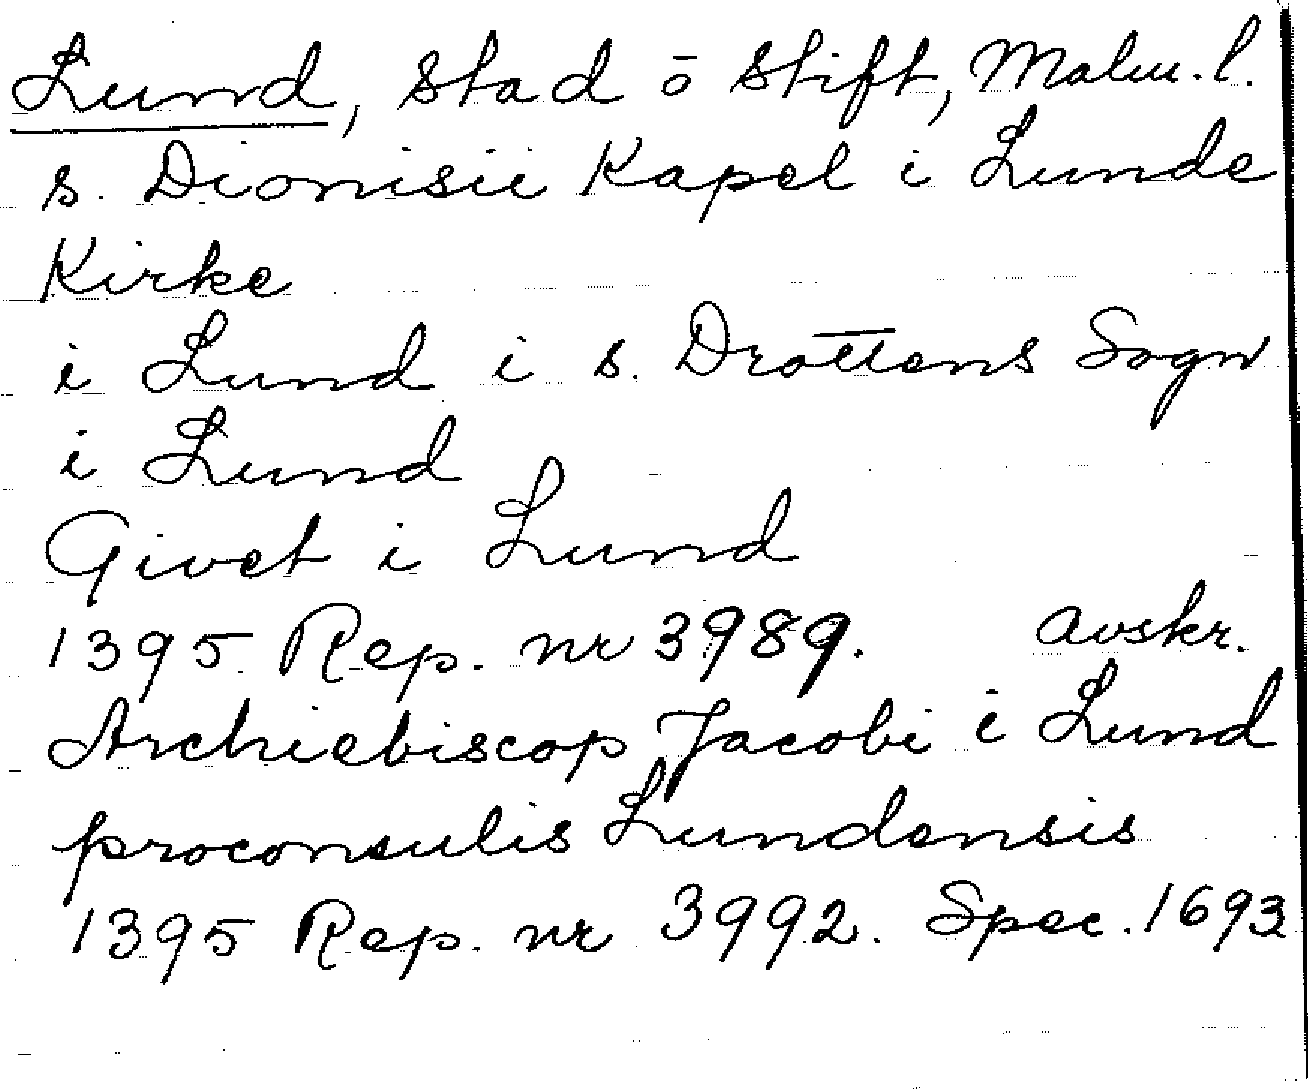 Lund, stad o stift, Malm. l.
s. Dionisii Kapel i Lunde
Kirke
i Lund i s. Drottens Sogn
i Lund
Givet i Lund
1395 Rep. nr 3989. avskr.
Archiebiscop Jacobi i Lund
proconsulis Lundensis
1395 Rep. nr 3992. Spec. 1693